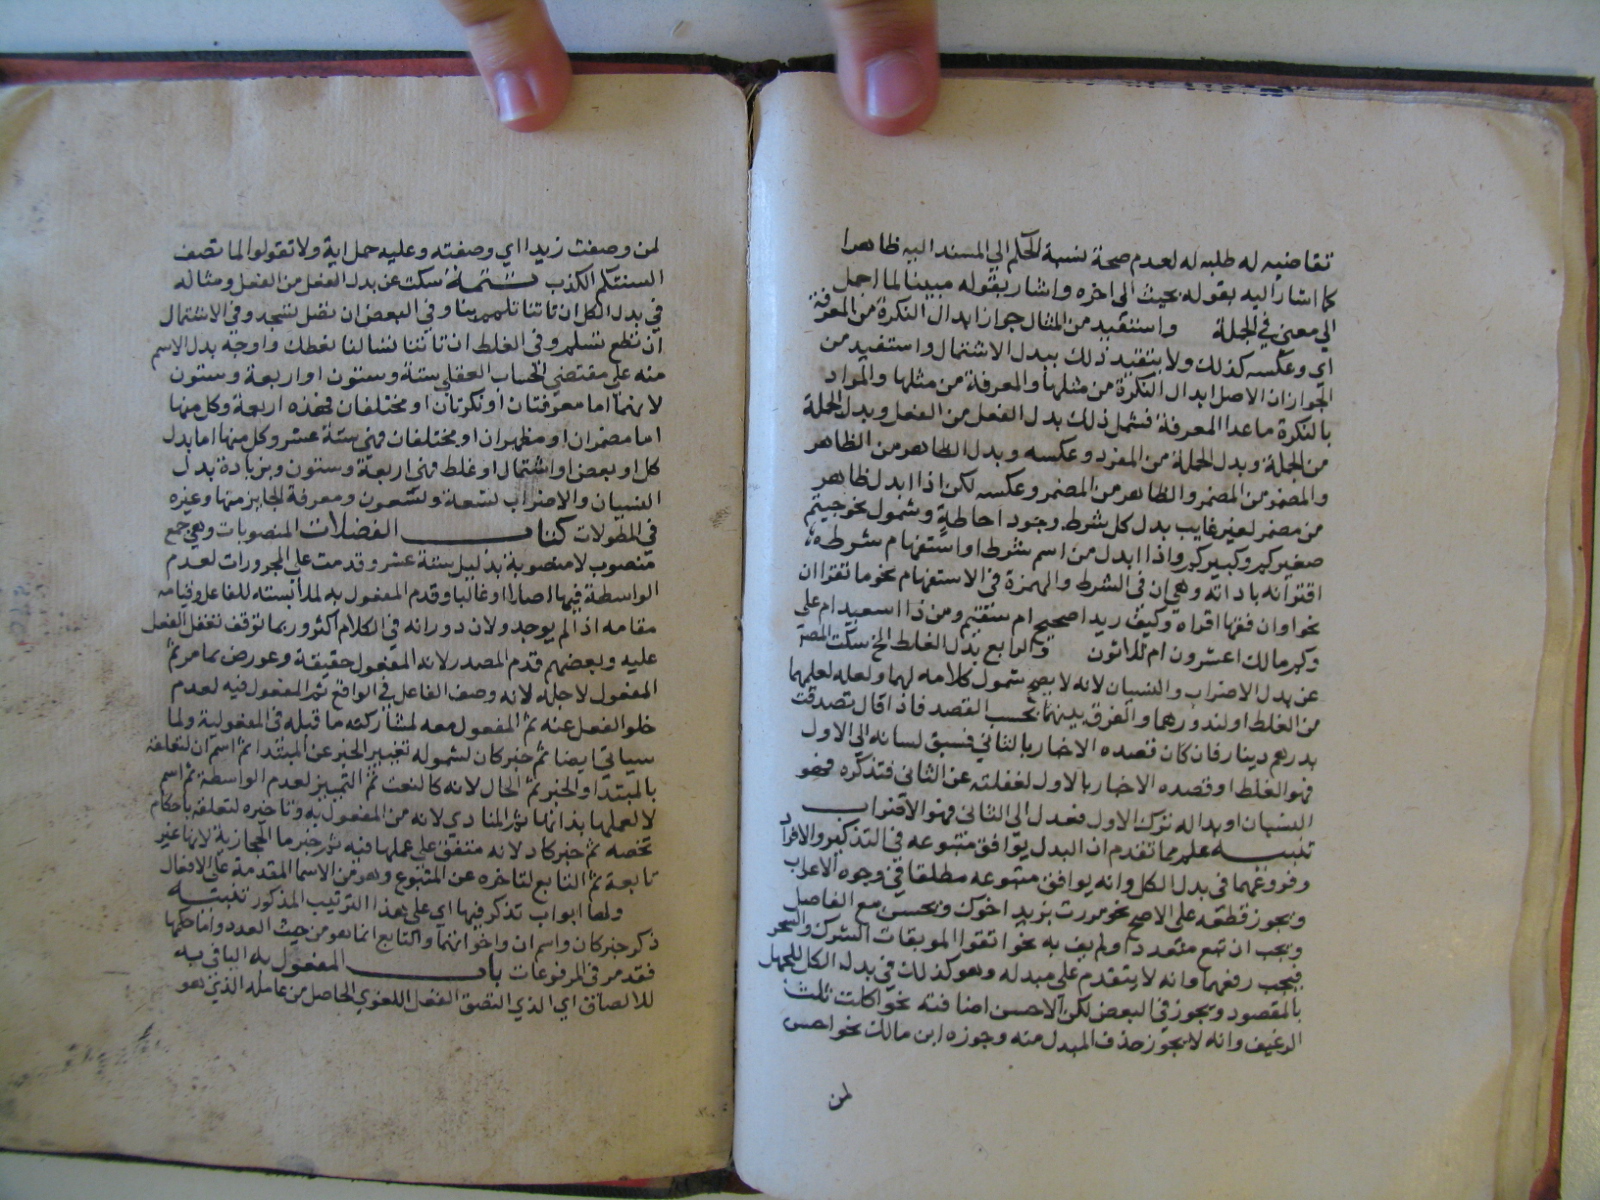 تقاضيه له طلبه له لعدم صحة نسبة الحكم الي المسند اليه ظاهرا
كما اشار اليه بقوله بحيث الى اخره واشار بقوله مبينا لما اجمل
الي معنى في الجملة واستفيد من المثال جواز ابدال النكرة من المعرفة
اي وعكسه كذلك ولا يتقيد ذلك ببدل الاشتمال واستفيد من
الجواز ان الاصل ابدال النكرة من مثلها والمعرفة من مثلها والمراد
بالنكرة ماعدا المعرفة فشمل ذلك بدل الفعل من الفعل وبدل الجملة
من الجملة وبدل الجملة من المفرد وعكسه وبدل الظاهر من الظاهر
والمضمر من المضمر والظاهر من المضمر وعكسه لكن اذا ابدل ظاهر
من مضمر لغير غايب بدل كل شرط وجود احاطة وشمول نحو جيتم
صغيركم وكبيركم واذا ابدل من اسم شرط او استفهام شرطه
اقترانه باداته وهي ان في الشرط والهمزة في الاستفهام نحو ما تقرا ان
نحوا وان فقها اقراه وكيف زيد اصحيح ام سقيم ومن ذا اسعيد ام علي
وكم مالك اعشرون ام ثلاثون والرابع بدل الغلط الخ سكت المص
عن بدل الاضراب والنسيان لانه لا يصح شمول كلامه لهما ولعله لعلمهما
من الغلط او لندورهما والفرق بينهما بحسب القصد فاذا قال تصدقت
بدرهم دينار فان كان قصده الاخبار بالثاني فسبق لسانه الي الاول
فهو الغلط او قصده الاخبار بالاول لغفلته عن الثاني فتذكره فهو
النسيان او بدا له ترك الاول فعدل الى الثاني فهو الاضراب
تنبيه علم مما تقدم ان البدل يوافق متبوعه في التذكير والافراد
وفروعهما في بدل الكل وانه يوافق متبوعه مطلقا في وجوه الاعراب
ويجوز قطعه على الاصح نحو مررت بزيد اخوك ويحسن مع الفاصل
ويجب ان تبع متعدد ولم يف به نحو اتقوا الموبقات الشرك والسحر
فيجب رفعهما وانه لا يتقدم على مبدله وهو كذلك في بدل الكل للجهل
بالمقصود ويجوز في البعض لكن الاحسن اضافته نحو اكلت ثلث
الرغيف وانه لا يجوز حذف المبدل منه وجوزه ابن مالك نحو احسن
لمن
لمن وصفت زيدا اي وصفته وعليه حمل اية ولا تقولوا لما تصف
السنتكم الكذب تتمة سكت عن بدل الفعل من الفعل ومثاله
في بدل الكل ان تاتنا تلمم بنا وفي البعض ان تصل تسجد وفي الاشتمال
ان تطع تسلم وفي الغلط ان تاتنا تسالنا نعطك واوجه بدل الاسم
منه على مقتضي الحساب العقلي ستة وستون او اربعة وستون
لانهما اما معرفتان او نكرتان او مختلفان فهذه اربعة وكل منها
اما مضمران او مظهران او مختلفان فهي ستة عشر وكل منها اما بدل
كل او بعض او اشتمال او غلط فهي اربعة وستون وبزيادة بدل
النسيان والاضراب تسعة وتسعون ومعرفة الجايز منها وغيره
في المطولات كتاب الفضلات المنصوبات وهي جمع
منصوب لا منصوبة بدليل ستة عشر وقدمت علي المجرورات لعدم
الواسطة فيها اصلا او غالبا وقدم المفعول به لملابسته للفاعل وقيامه
مقامه اذا لم يوجد ولان دورانه في الكلام اكثر وربما توقف تعقل الفعل
عليه وبعضهم قدم المصدر لانه المفعول حقيقة وعورض بما مر ثم
المفعول لاجله لانه وصف الفاعل في الواقع ثم المفعول فيه لعدم
خلو الفعل عنه ثم المفعول معه لمشاركته ما قبله في المفعولية ولما
سياتي ايضا ثم خبر كان لشموله تغيير الخبر عن المبتدا ثم اسم ان لتعلقه
بالمبتدا والخبر ثم الحال لانه كالنعت ثم التمييز لعدم الواسطة ثم اسم
لا لعملها بذاتها ثم المنادي لانه من المفعول به وتاخيره لتعلقه باحكام
تخصه ثم خبر كاد لانه متفق على عملها فيه ثم خبر ما الحجازية لانها غير
تابعة ثم التابع لتاخره عن المتبوع وهو من الاسما المقدمة على الافعال
ولها ابواب تذكر فيها اي على هذا الترتيب المذكور تنبيه
ذكر خبر كان واسم ان واخواتهما والتابع انما هو من حيث العدد واما حكمها
فقد مر في المرفوعات باب المفعول به البا في به
للالصاق اي الذي التصق الفعل اللغوي الحاصل من عامله الذي هو